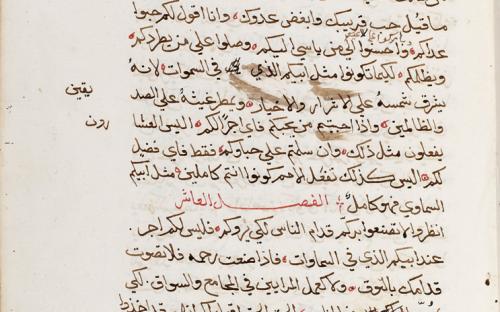 ما قيل حب قريبك وابغض عدوك وانا اقول لكم حبوا
باركوا علي لاعنيكم
عداكم واحسنوا الي من ياسي اليكم وصلوا علي من يطردكم
ويظلمكم لكيما تكونوا مثل ابيكم الذي في السموات لانه
يشرق شمسه علي الاشرار والاخيار ويمطر غيثه علي الصد
يقين
والظالمين واذا احببتم من يحبكم فاي اجر لكم اليس العشا
رون
يفعلون مثل ذلك وان سلمتم علي حباوكم فقط فاي فضيل
لكم اليس كذلك تفعل الامم كونوا انتم كاملين مثل ابيكم
السماوي فهو كامل الفصل العاشر
انظروا لا تصنعوا بركم قدام الناس لكي يروكم فليس لكم اجر
عند ابيكم الذي في السماوات فاذا صنعت رحمه فلا تصوت
قدامك بالبوق ولا كعمل المرايين في المجامع والسواق لكي